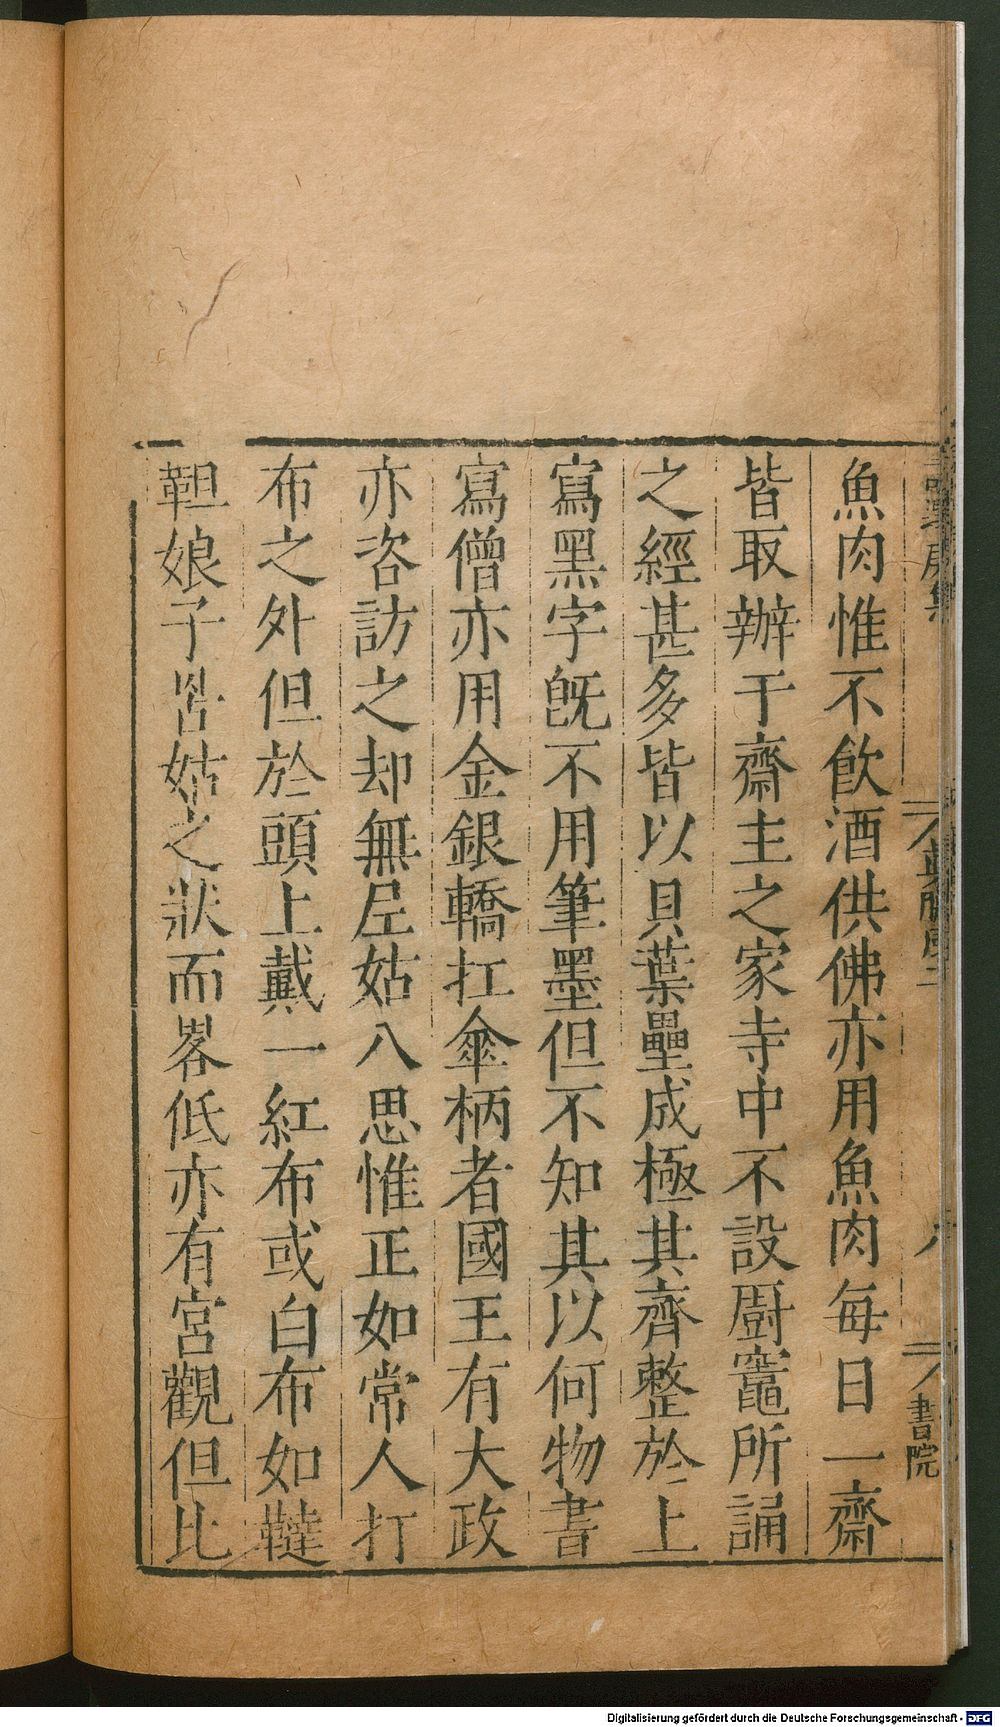 魚肉惟不飲酒供佛亦用魚肉每日一齋
皆取辦于齋主之家寺中不設厨竈所誦
之經甚多皆以貝葉壘成極其齊整於上
寫黑字旣不用筆墨但不知其以何物書
寫僧亦用金銀轎扛傘柄者國王有大政
亦咨訪之却無尼姑八思惟正如常人打
布之外但於頭上戴一紅布或白布如韃
靼娘子罟姑之狀而畧低亦有宮觀但比
書院
Digitalisierung gefördert durch die Deutsche Forschungsgemeinschaft - DFG